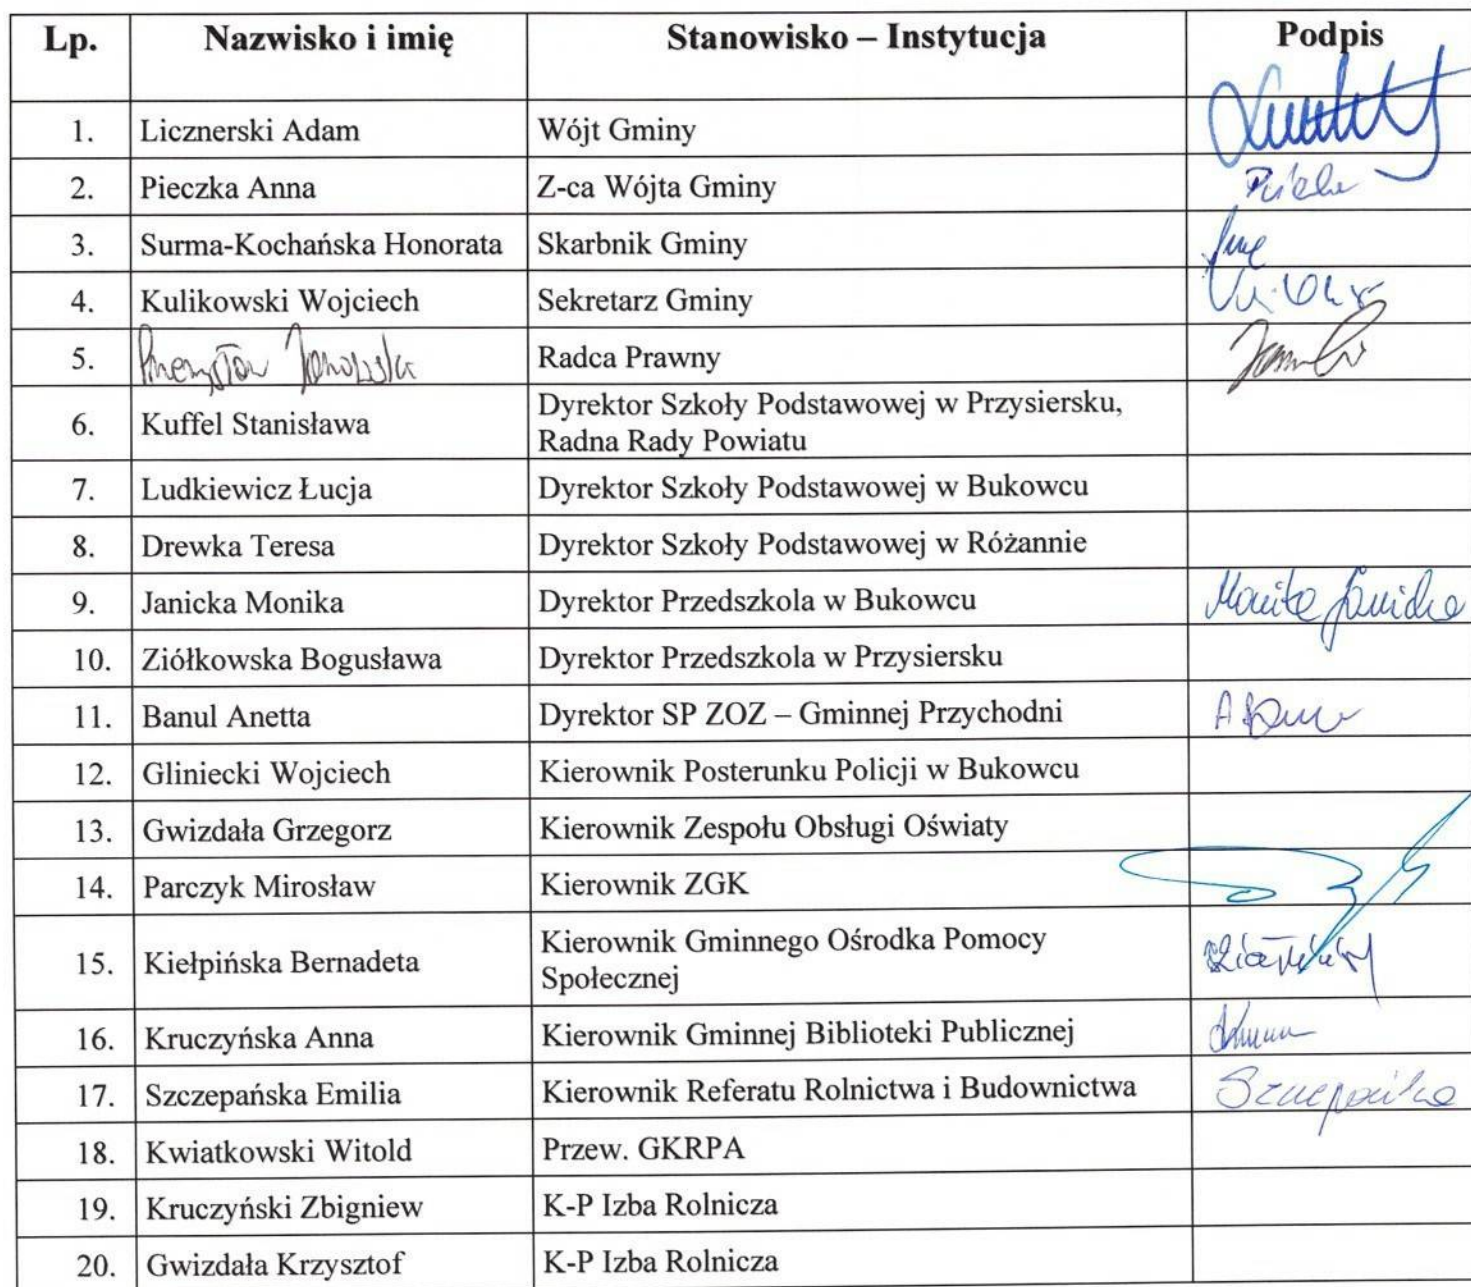 Lp. Nazwisko i imię Stanowisko – Instytucja Podpis
1. Licznerski Adam Wójt Gminy
2. Pieczka Anna Z-ca Wójta Gminy
3. Surma-Kochańska Honorata Skarbnik Gminy
4. Kulikowski Wojciech Sekretarz Gminy
5. Przemysław Radca Prawny
6. Kuffel Stanisława Dyrektor Szkoły Podstawowej w Przysiersku,
Radna Rady Powiatu
7. Ludkiewicz Łucja Dyrektor Szkoły Podstawowej w Bukowcu
8. Drewka Teresa Dyrektor Szkoły Podstawowej w Różannie
9. Janicka Monika Dyrektor Przedszkola w Bukowcu Monika Janicka
10. Ziółkowska Bogusława Dyrektor Przedszkola w Przysiersku
11. Banul Anetta Dyrektor SP ZOZ – Gminnej Przychodni
12. Gliniecki Wojciech Kierownik Posterunku Policji w Bukowcu
13. Gwizdała Grzegorz Kierownik Zespołu Obsługi Oświaty
14. Parczyk Mirosław Kierownik ZGK
15. Kiełpińska Bernadeta Kierownik Gminnego Ośrodka Pomocy
Społecznej
16. Kruczyńska Anna Kierownik Gminnej Biblioteki Publicznej
17. Szczepańska Emilia Kierownik Referatu Rolnictwa i Budownictwa
18. Kwiatkowski Witold Przew. GKRPA
19. Kruczyński Zbigniew K-P Izba Rolnicza
20. Gwizdała Krzysztof K-P Izba Rolnicza